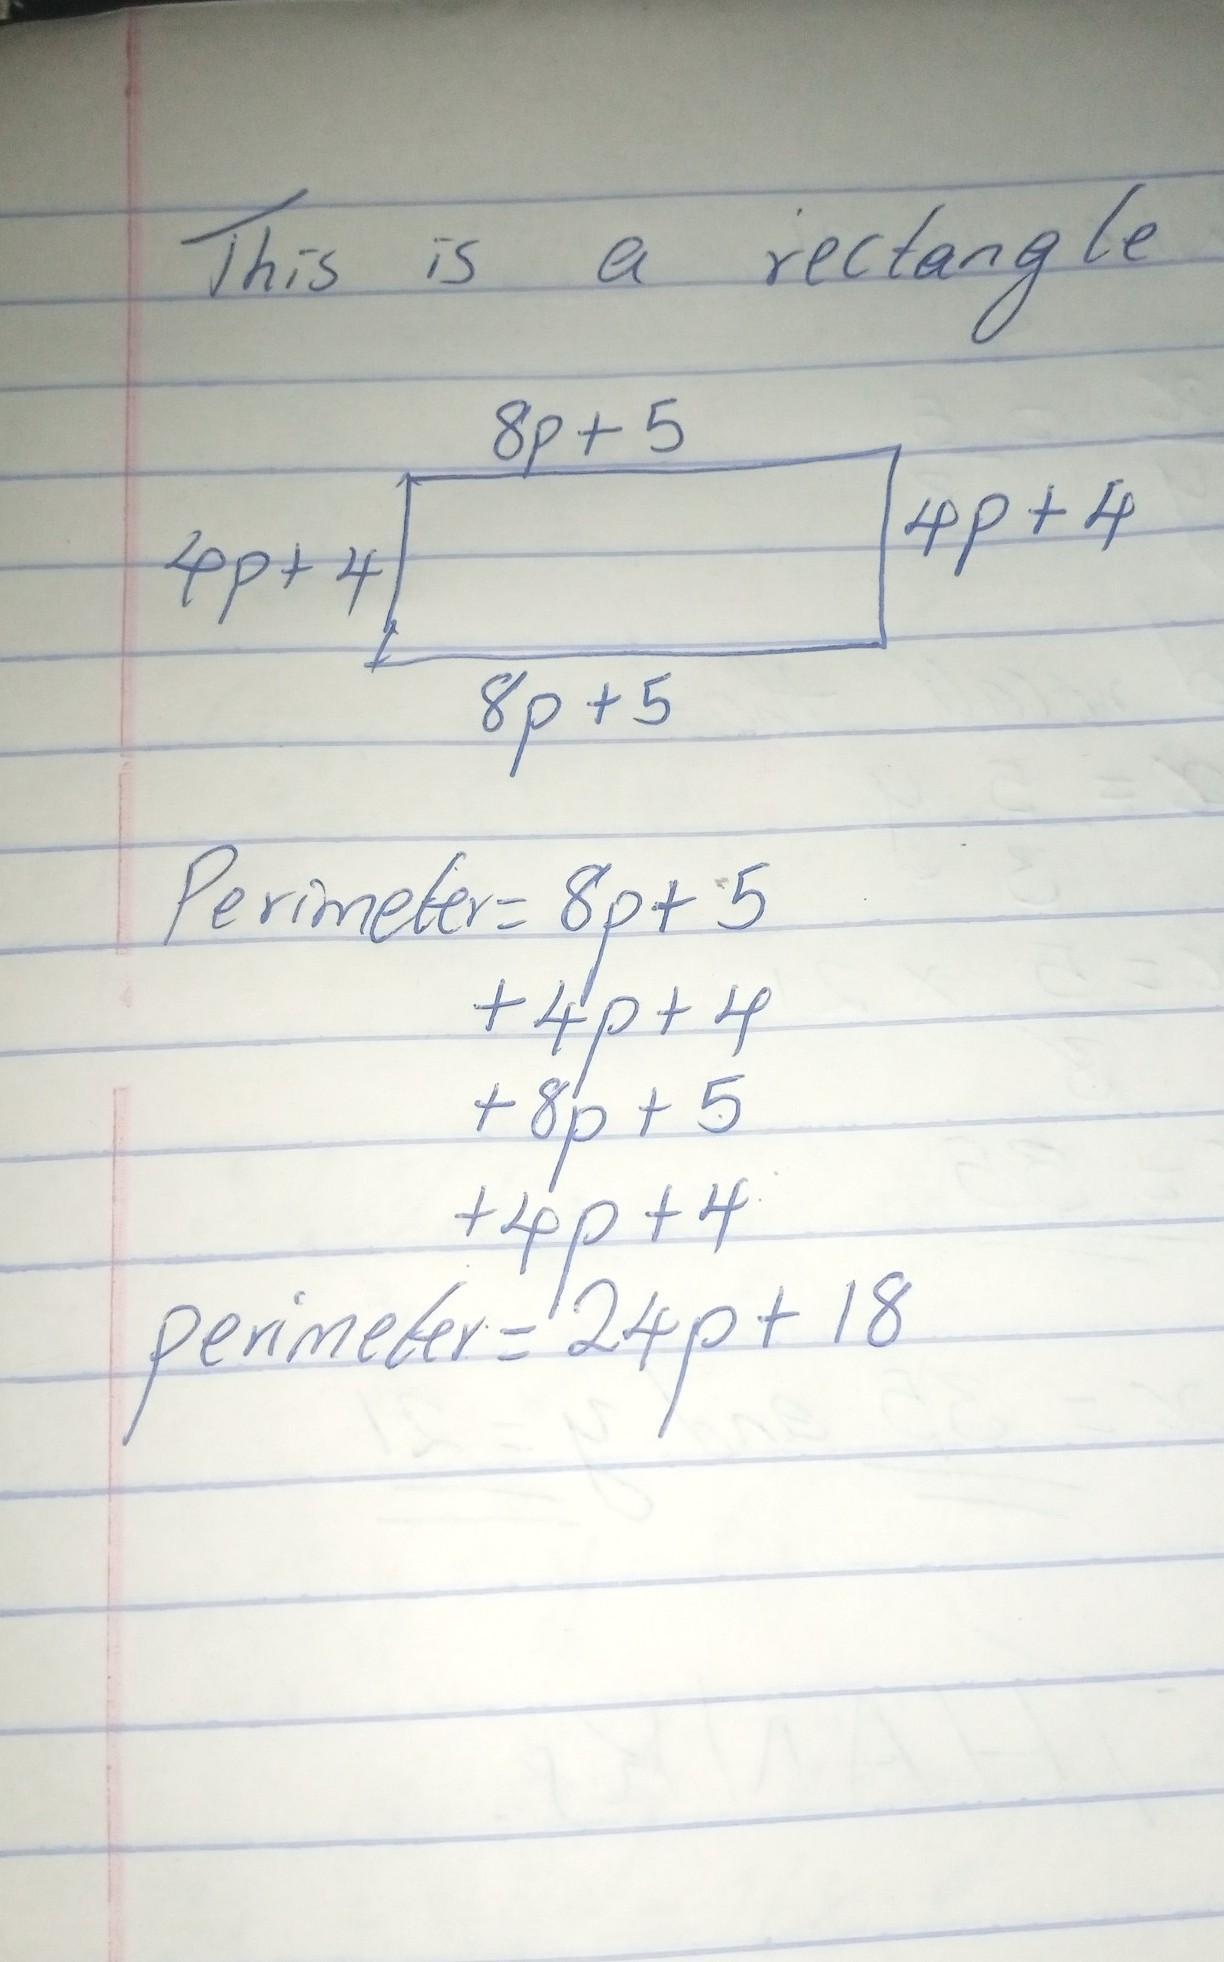 This is a rectangle
8p + 5
4p + 4
4p + 4
8p + 5
Perimeter = 8p + 5
+ 4p + 4
+ 8p + 5
+ 4p + 4
perimeter = 24p + 18